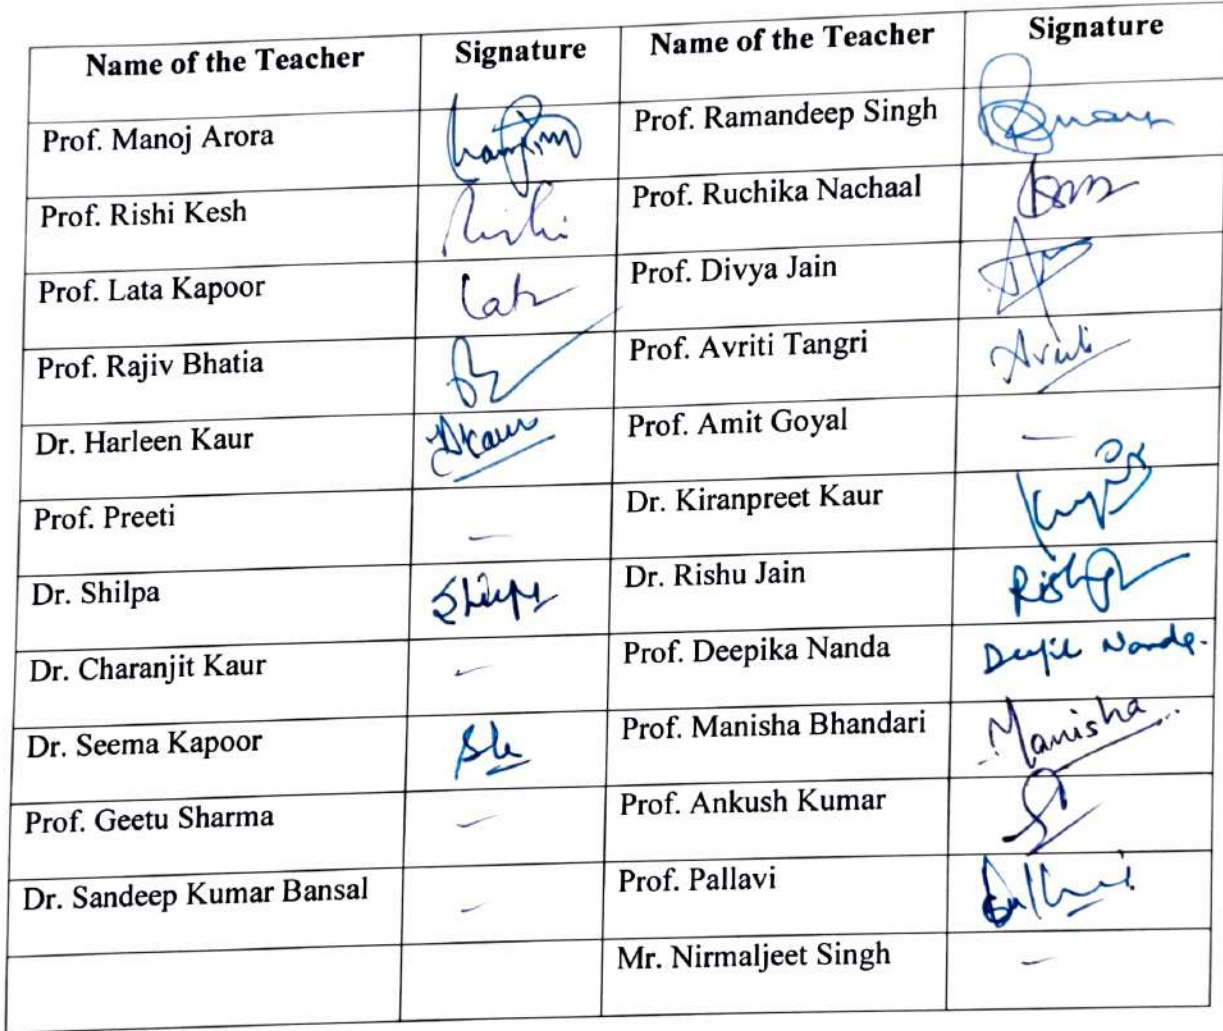 Name of the Teacher Signature Name of the Teacher Signature
Prof. Manoj Arora Prof. Ramandeep Singh
Prof. Rishi Kesh Rishi Prof. Ruchika Nachaal
Prof. Lata Kapoor Lata Prof. Divya Jain
Prof. Rajiv Bhatia Prof. Avriti Tangri Avriti
Dr. Harleen Kaur Hkaur Prof. Amit Goyal —
Prof. Preeti — Dr. Kiranpreet Kaur
Dr. Shilpa Shilpa Dr. Rishu Jain
Dr. Charanjit Kaur — Prof. Deepika Nanda Deepika Nanda.
Dr. Seema Kapoor Prof. Manisha Bhandari Manisha
Prof. Geetu Sharma — Prof. Ankush Kumar
Dr. Sandeep Kumar Bansal — Prof. Pallavi Pallavi
Mr. Nirmaljeet Singh —